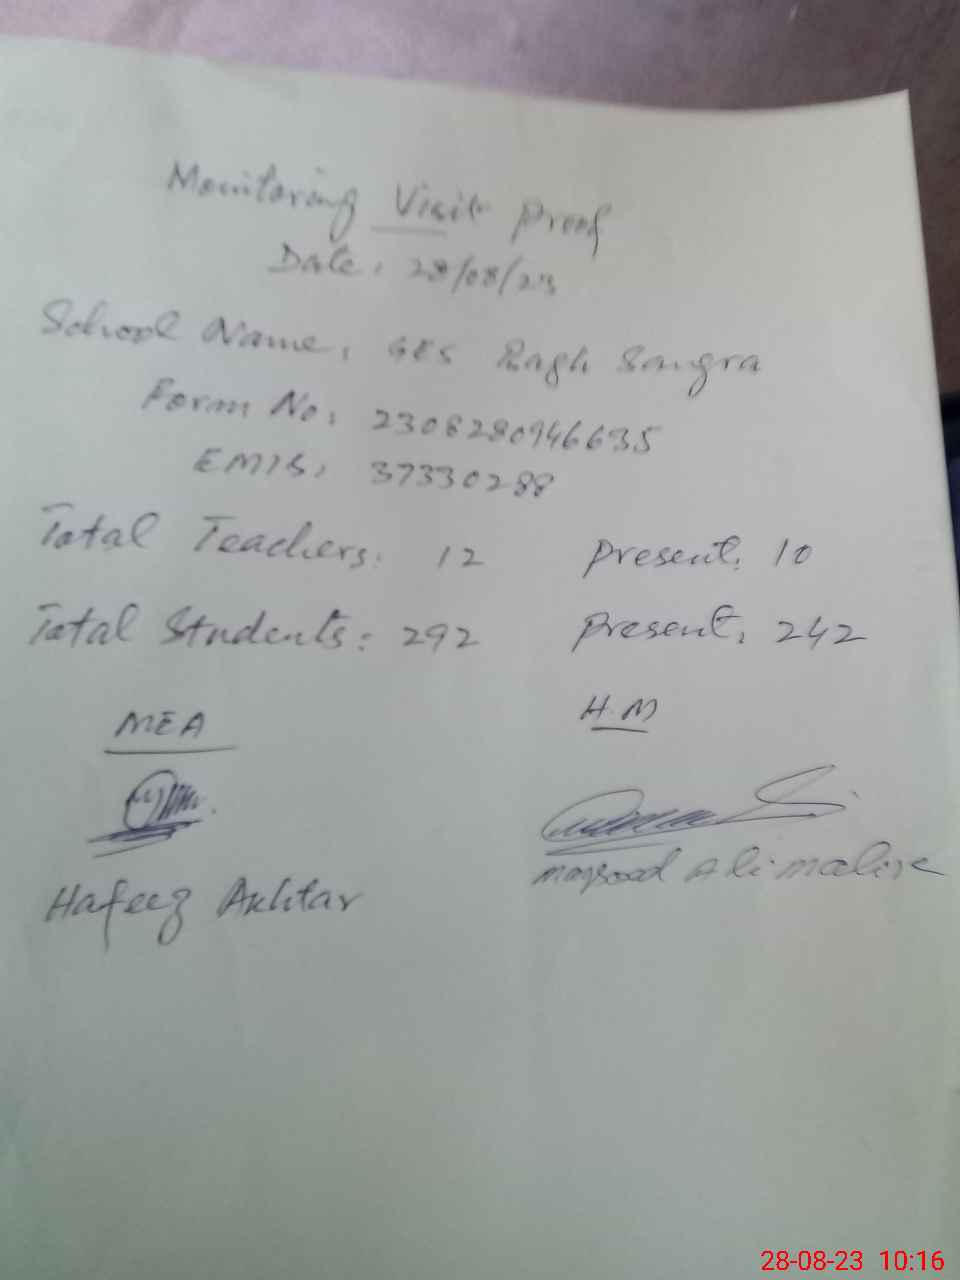 Monitoring Visit Proof
Date: 28/08/23
School Name: GES Bagh Sangra
Form No: 2308280946635
EMIS: 37330288
Total Teachers: 12 Present: 10
Total Students: 292 Present: 242
MEA H.M
Hafeez Akhtar Maqsood Ali Malik
28-08-23 10:16